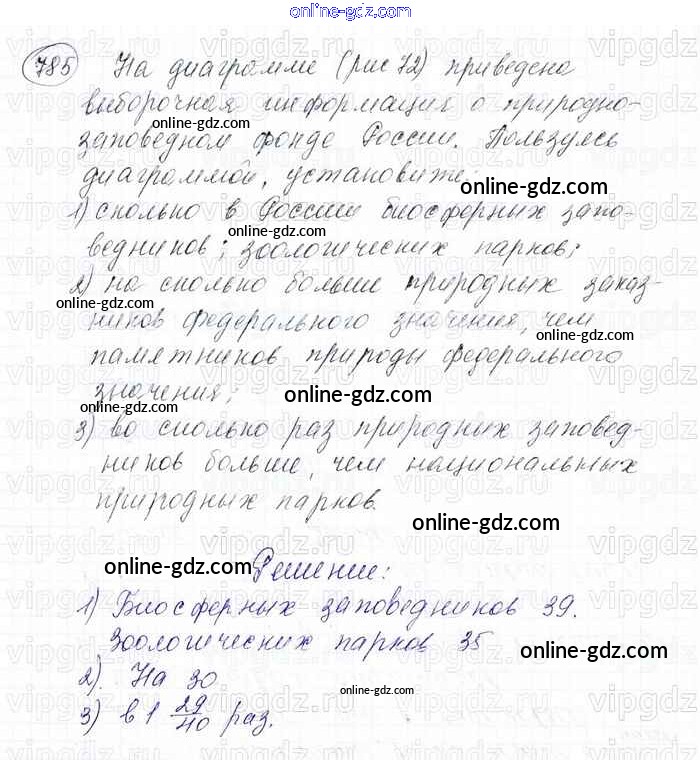 online-gdz.com
785 На диаграмме (рис 72) приведена
выборочная информация о природно-
online-gdz.com
заповедном фонде России. Пользуясь
диаграммой, установите:
online-gdz.com
1) сколько в России биосферных запо-
ведников; зоологических парков;
2) на сколько больше природных заказ-
online-gdz.com
ников федерального значения, чем
online-gdz.com
памятников природы федерального
значения;
online-gdz.com
online-gdz.com
3) во сколько раз природных заповед-
ников больше, чем национальных
природных парков.
online-gdz.com
online-gdz.com
Решение:
1) Биосферных заповедников 39.
Зоологических парков 35
online-gdz.com
2). На 30
online-gdz.com
3) в 1 29/40 раз.
online-gdz.com